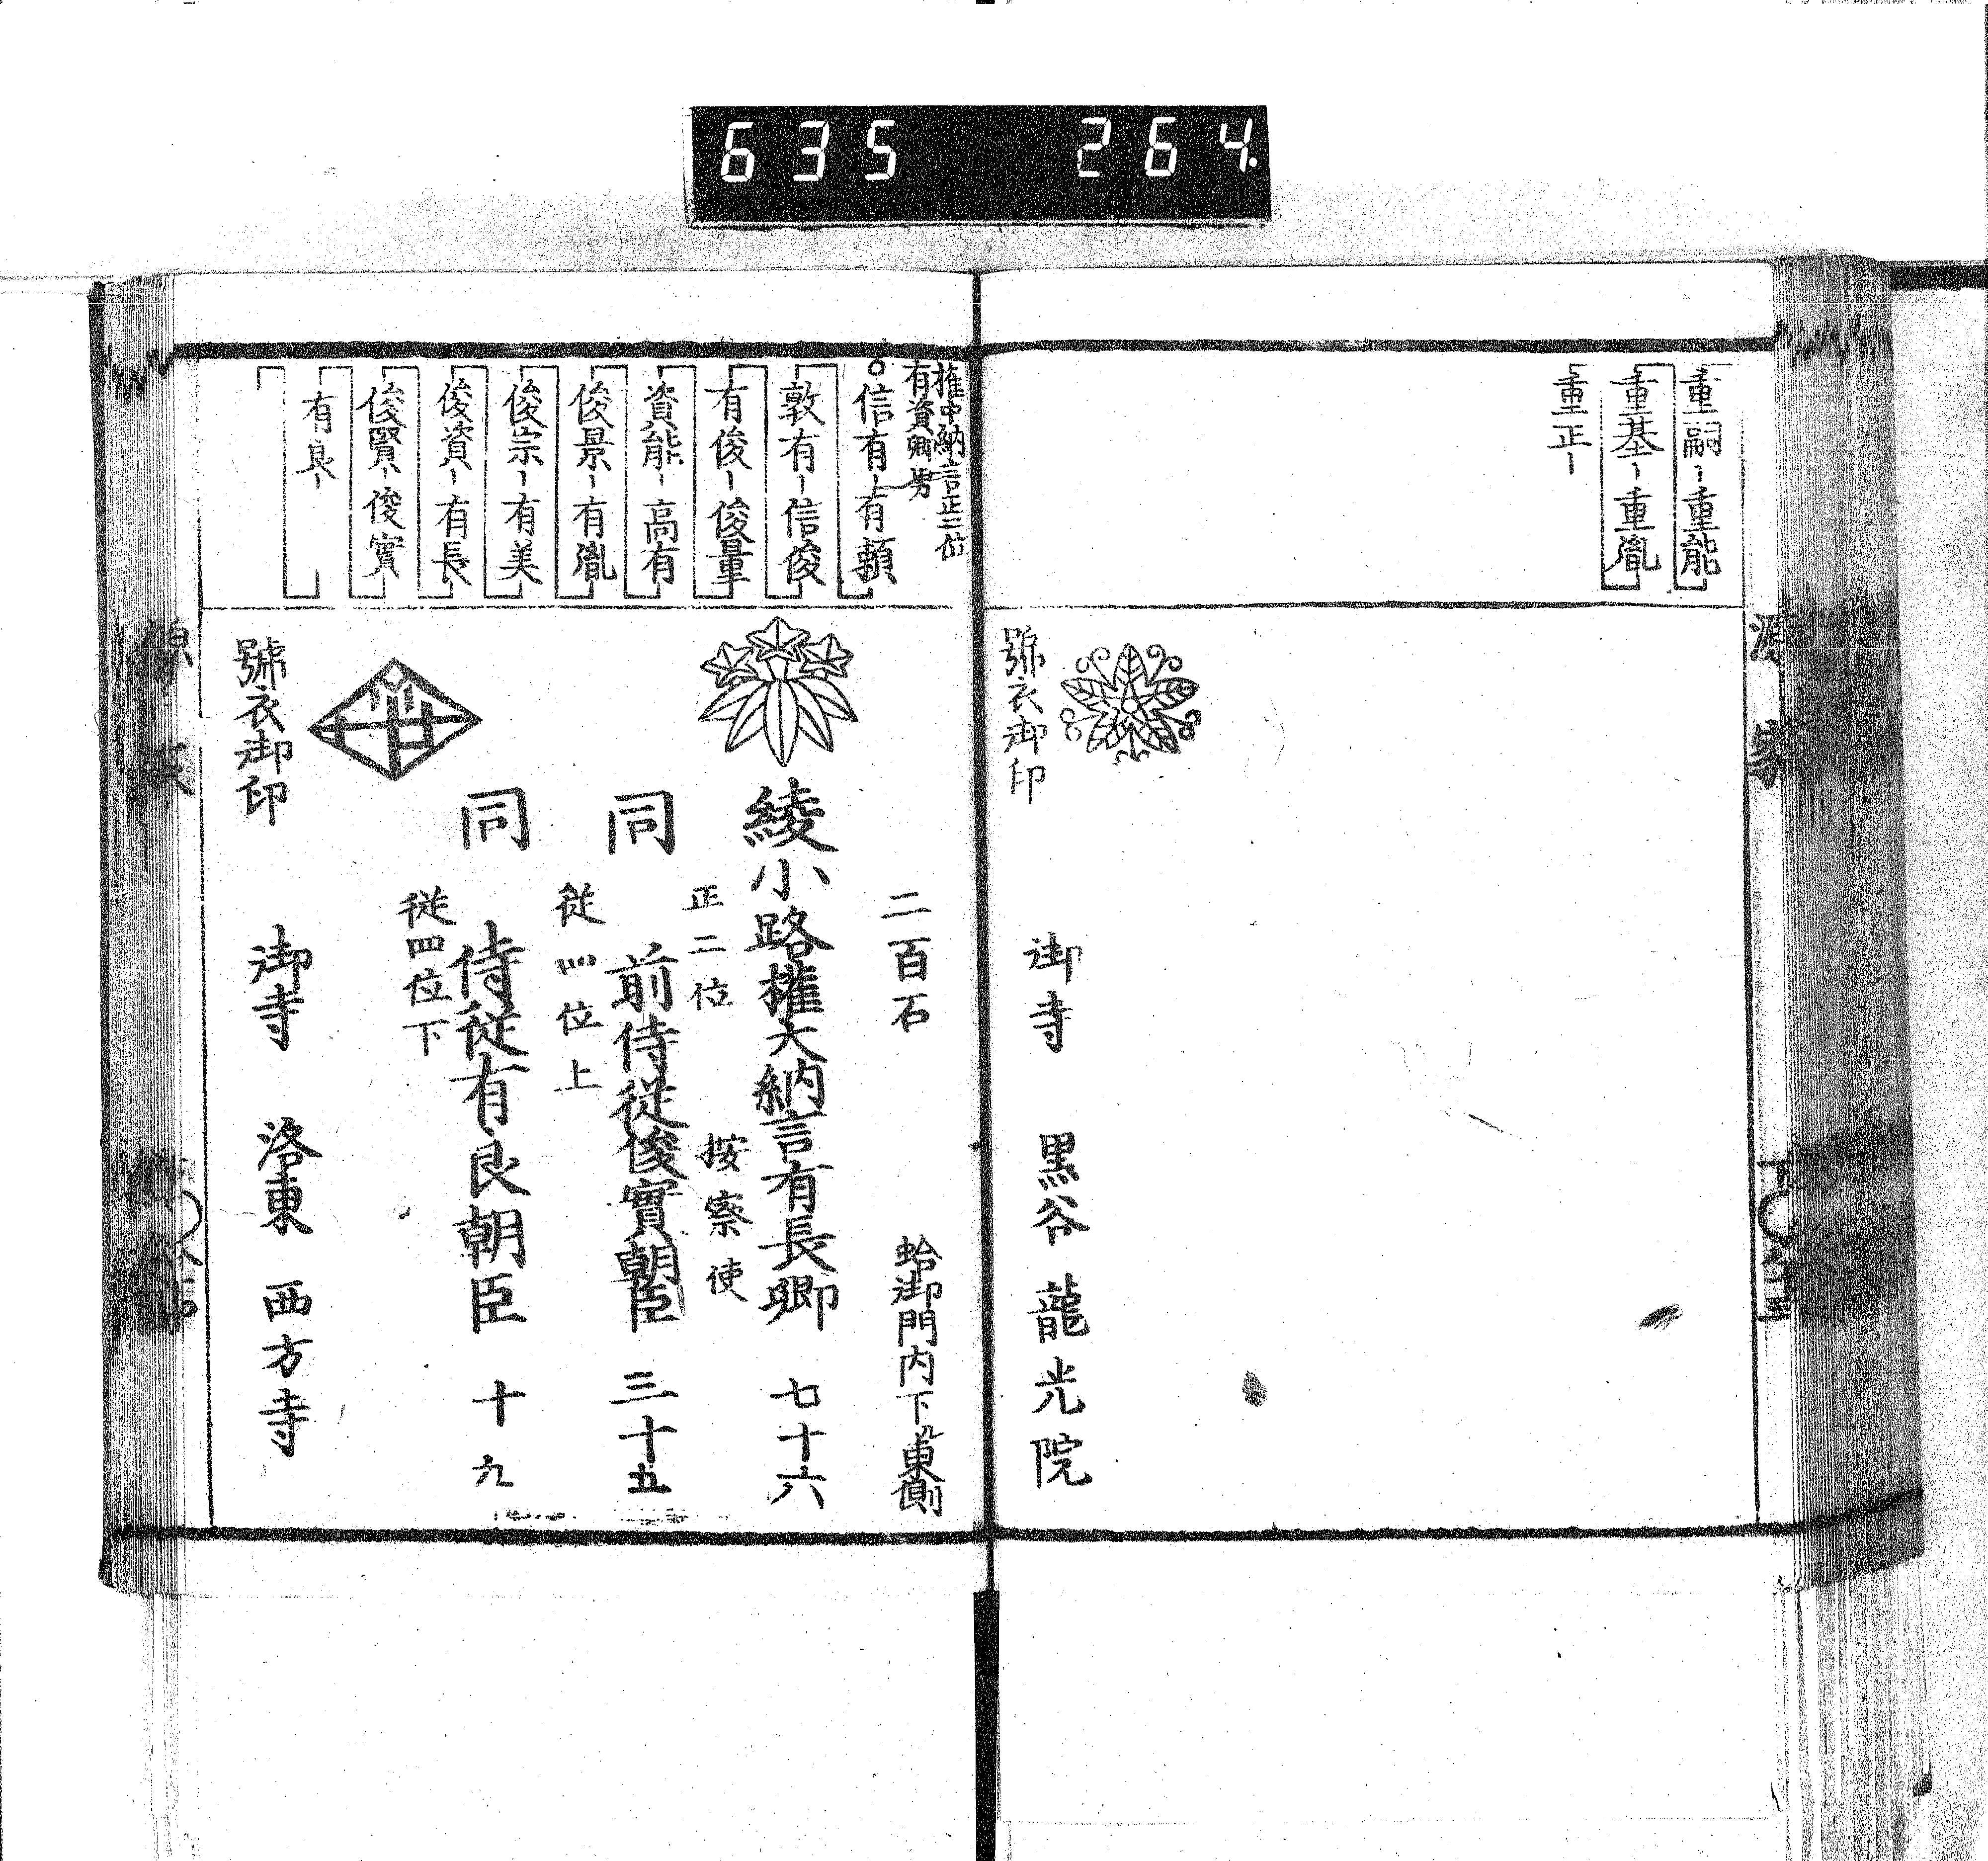 635 264
重嗣 重能
重基 重胤
重正
號衣御印
御寺 黒谷 龍光院
權中納言正二位
有資卿男
信有 有頼
敦有 信俊
有俊 俊量
資能 高有
俊景 有胤
俊宗 有美
俊資 有長
俊賢 俊實
有良
二百石 蛤御門内下ル東側
綾小路權大納言有長卿 七十六
正二位 按察使
同 前侍従俊實朝臣 三十五
従四位上
同 侍従有良朝臣 十九
従四位下
號衣御印
御寺 洛東 西方寺
源家